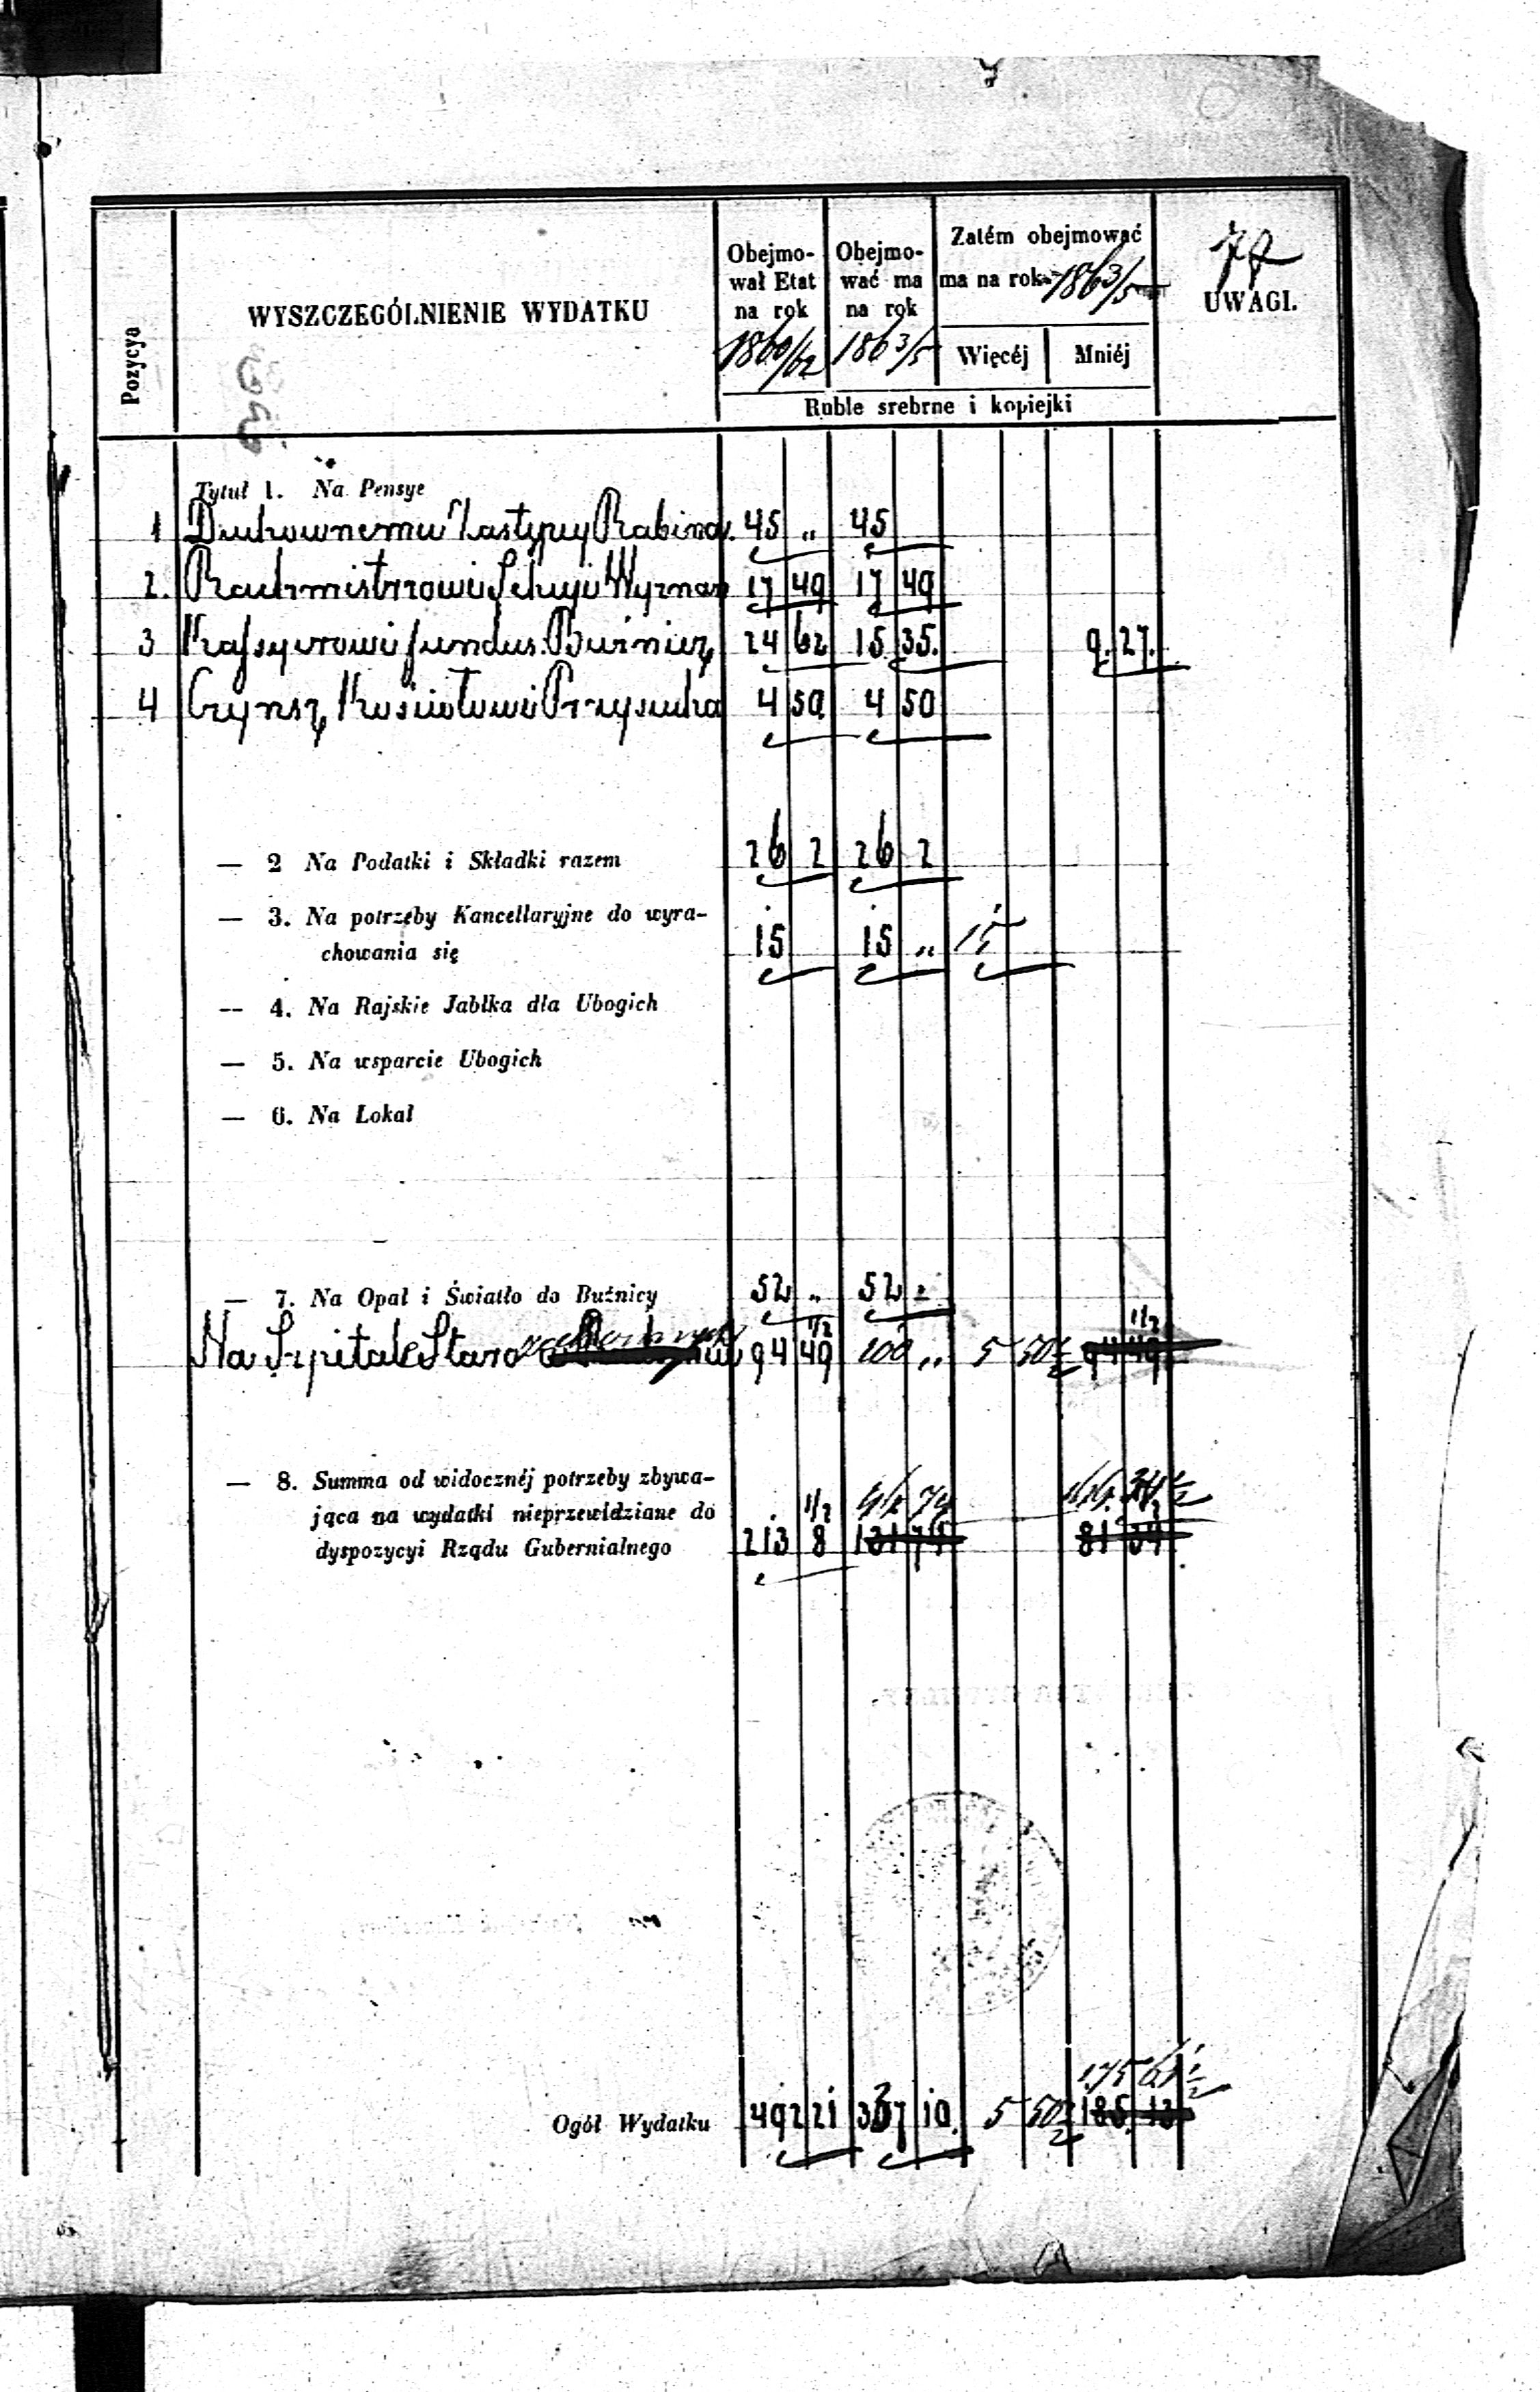 Pozycya
WYSZCZEGÓLNIENIE WYDATKU
Obejmo-
wał Etat
na rok
1860/62
Obejmo-
wać ma
na rok
1863/5
Zatém obejmować
ma na rok 1863/5
Więcéj
Mniéj
UWAGI.
Ruble srebrne i kopiejki
Tytuł 1. Na Pensye
1 Duchownemu Zastępcy Rabina. 45 " 45
2. Rachmistrzowi Sekcyi Wyznań 17 49 17 49
3 Kassyerowi fundus. Bużnicz. 24 62 15 35. 9. 27.
4 Czynsz Kościołowi Przysucha 4 50 4 50
— 2 Na Podatki i Składki razem 26 2 26 2
— 3. Na potrzeby Kancellaryjne do wyra-
chowania się 15 15 " 15
— 4. Na Rajskie Jabłka dla Ubogich
— 5. Na wsparcie Ubogich
— 6. Na Lokal
— 7. Na Opał i Światło do Bużnicy 52 " 52
Na Szpitale Staro 94 49 1/2 100 " 5 50 1/2 94 49 1/2
— 8. Summa od widocznéj potrzeby zbywa-
jąca na wydatki nieprzewidziane do
dyspozycyi Rządu Gubernialnego 213 8 1/2 131 74 81 34
Ogół Wydatku 492 21 337 10. 5 50 1/2 185. 13